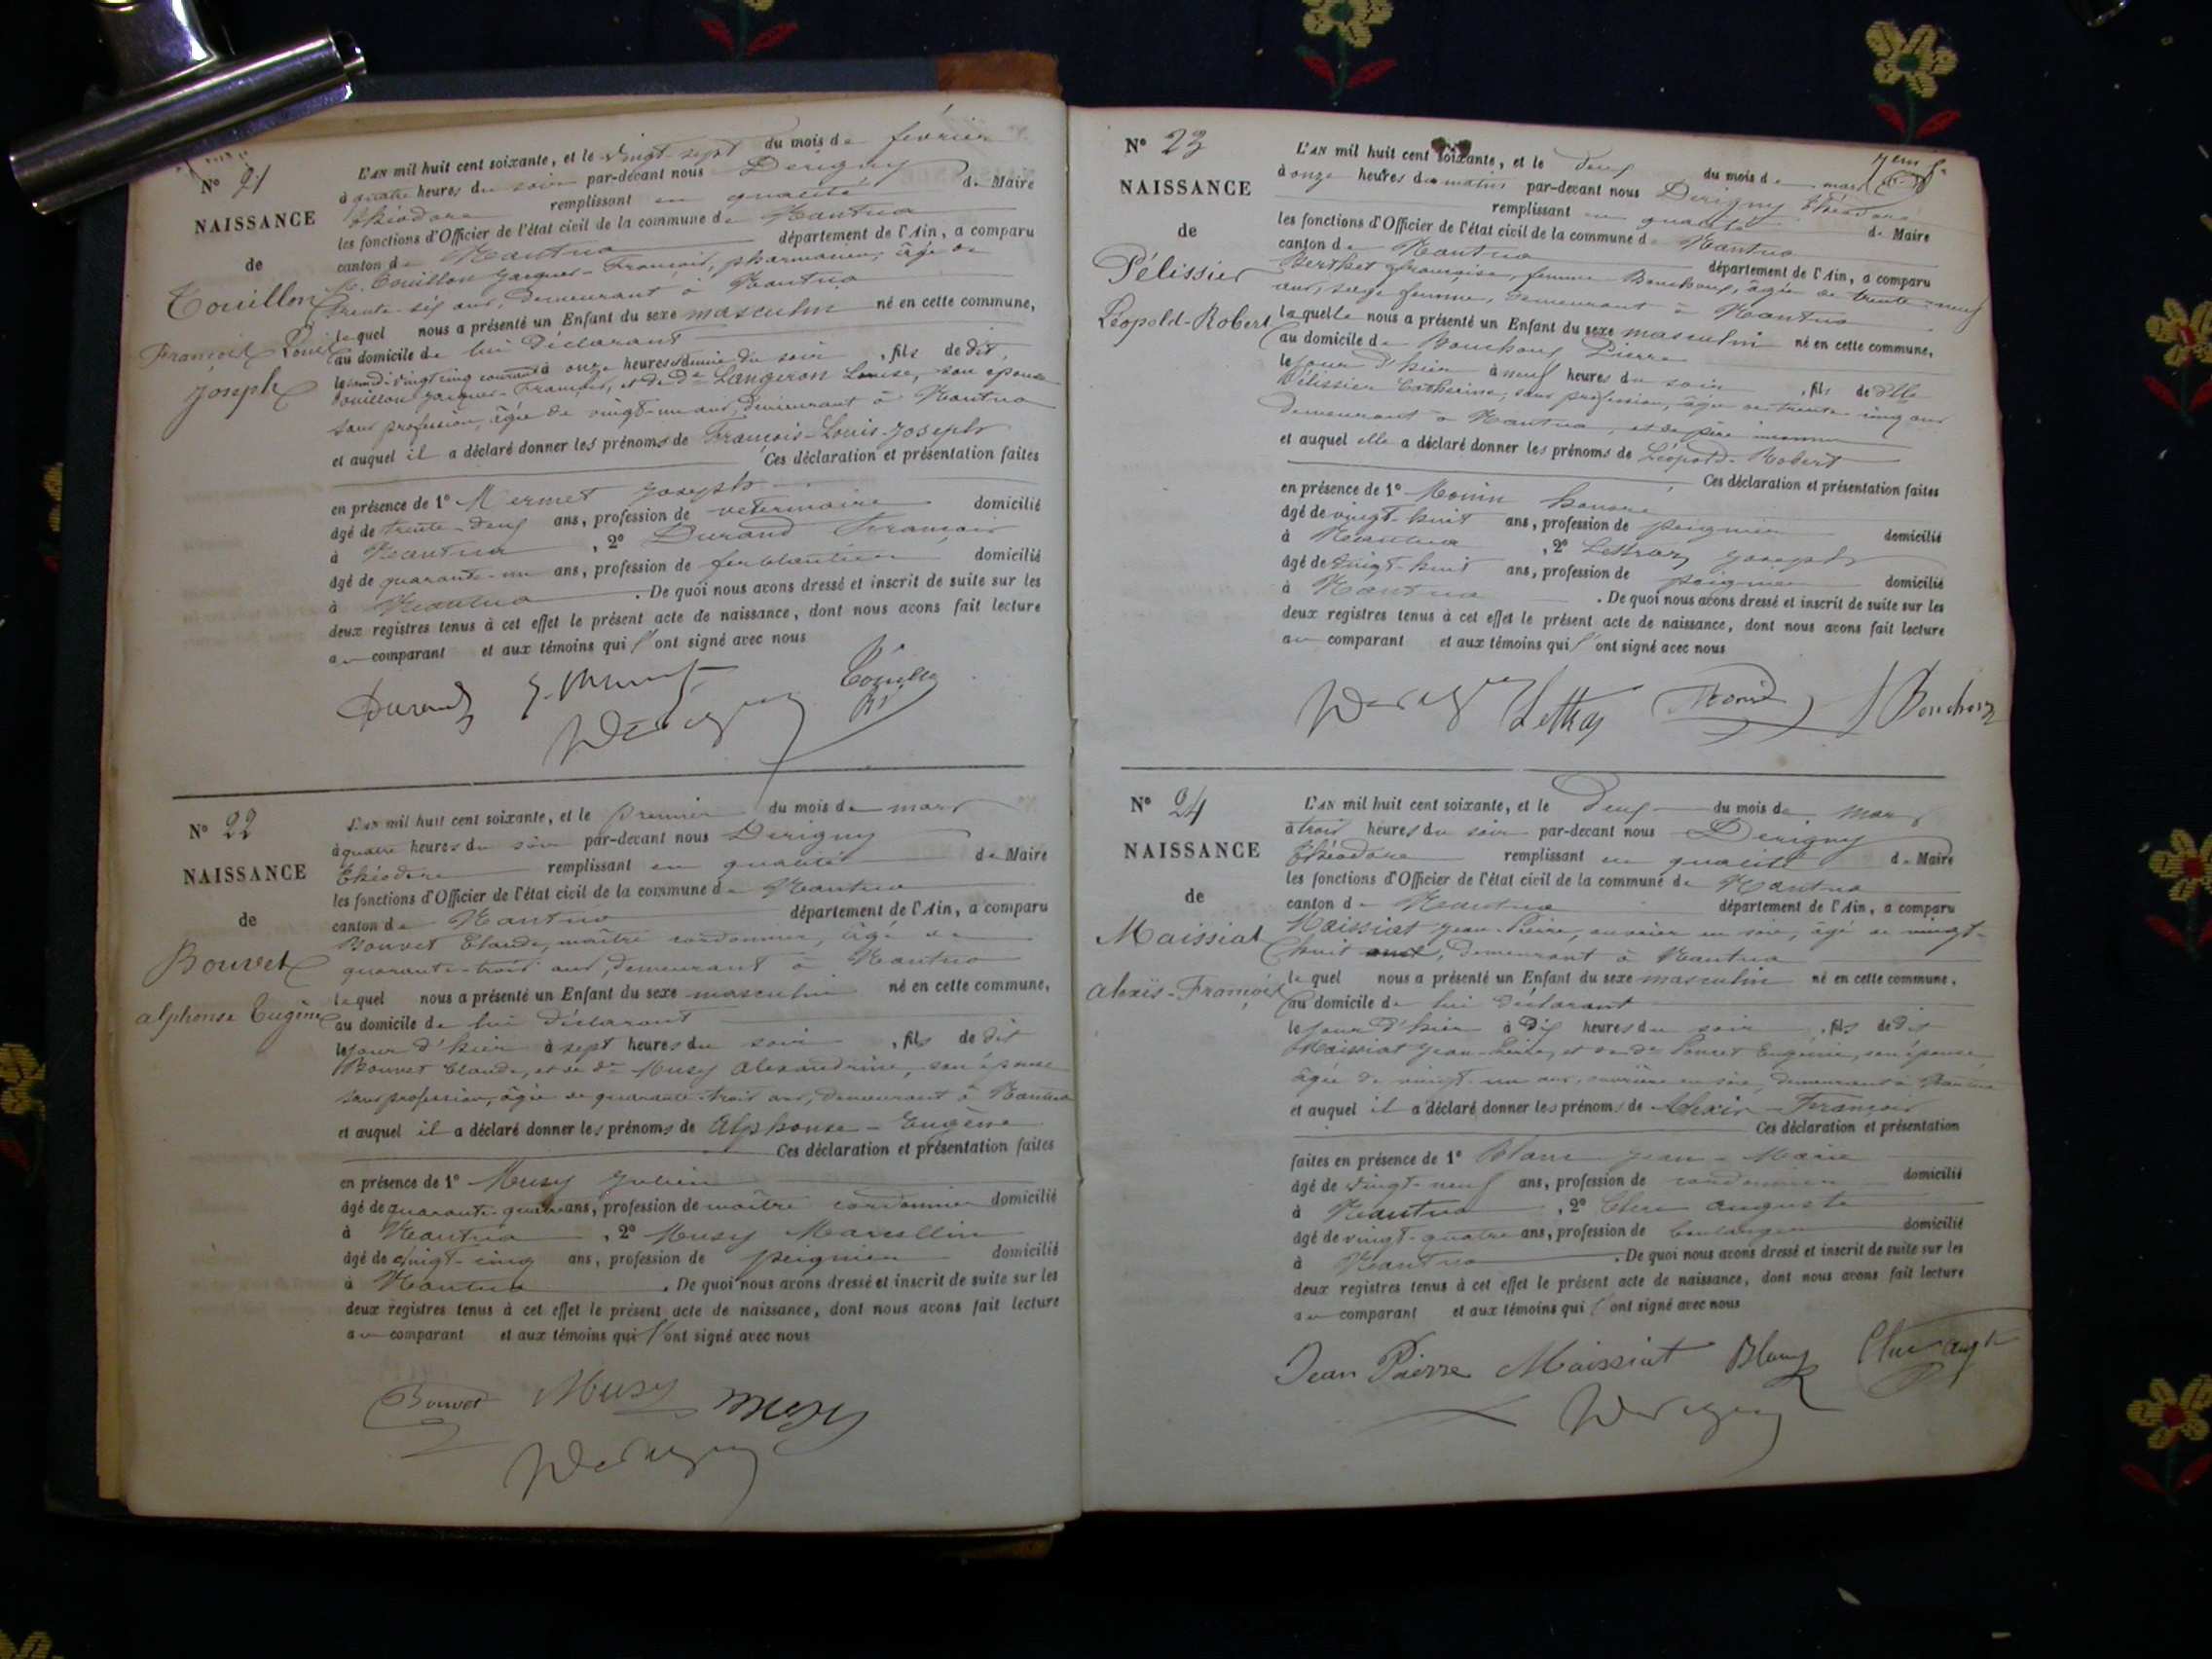 N° 21
NAISSANCE
de
Touillon
François Louis
Joseph
L'AN mil huit cent soixante, et le vingt-sept du mois de février
à quatre heures du soir par-devant nous Derigny
Théodore remplissant en qualité de Maire
les fonctions d'Officier de l'état civil de la commune de Nantua
canton de Nantua département de l'Ain, a comparu
M. Touillon Jacques-François, pharmacien, âgé de
trente-six ans, demeurant à Nantua
lequel nous a présenté un Enfant du sexe masculin né en cette commune,
au domicile de lui déclarant
le vingt cinq courant à onze heures demie du soir, fils de dit
Touillon Jacques-François, et de de Langeron Louise, son épouse
sans profession, âgée de vingt-un ans, demeurant à Nantua
et auquel il a déclaré donner les prénoms de François-Louis-Joseph
Ces déclaration et présentation faites
en présence de 1° Mermet Joseph
âgé de trente-deux ans, profession de veterinaire domicilié
à Nantua, 2° Durand François
âgé de quarante-un ans, profession de ferblantier domicilié
à Nantua. De quoi nous avons dressé et inscrit de suite sur les
deux registres tenus à cet effet le présent acte de naissance, dont nous avons fait lecture
au comparant et aux témoins qui l'ont signé avec nous
Durand J. Mermet Touillon
Derigny
N° 22
NAISSANCE
de
Bouvet
alphonse Eugène
L'AN mil huit cent soixante, et le premier du mois de mars
à quatre heures du soir par-devant nous Derigny
Théodore remplissant en qualité de Maire
les fonctions d'Officier de l'état civil de la commune de Nantua
canton de Nantua département de l'Ain, a comparu
Bouvet Claude, maître cordonnier, âgé de
quarante-trois ans, demeurant à Nantua
lequel nous a présenté un Enfant du sexe masculin né en cette commune,
au domicile de lui déclarant
le jour d'hier à sept heures du soir, fils de dit
Bouvet Claude, et de de Musy Alexandrine, son épouse
sans profession, âgée de quarante-trois ans, demeurant à Nantua
et auquel il a déclaré donner les prénoms de Alphonse-Eugène
Ces déclaration et présentation faites
en présence de 1° Musy Julien
âgé de quarante-quatre ans, profession de maître cordonnier domicilié
à Nantua, 2° Musy Marcellin
âgé de vingt-cinq ans, profession de peignier domicilié
à Nantua. De quoi nous avons dressé et inscrit de suite sur les
deux registres tenus à cet effet le présent acte de naissance, dont nous avons fait lecture
au comparant et aux témoins qui l'ont signé avec nous
Bouvet Musy musy
Derigny
N° 23
NAISSANCE
de
Pélissier
Léopold-Robert
L'AN mil huit cent soixante, et le deux du mois de mars
à onze heures du matin par-devant nous Derigny Théodore
remplissant en qualité de Maire
les fonctions d'Officier de l'état civil de la commune de Nantua
canton de Nantua département de l'Ain, a comparu
Berthet françoise, femme Bouchoux, âgée de trente-neuf
ans, sage femme, demeurant à Nantua
laquelle nous a présenté un Enfant du sexe masculin né en cette commune,
au domicile de Bouchoux Pierre
le jour d'hier à neuf heures du soir, fils de dlle
Pélissier Catherine, sans profession, âgée de trente-cinq ans
demeurant à Nantua, et de père inconnu
et auquel elle a déclaré donner les prénoms de Léopold-Robert
Ces déclaration et présentation faites
en présence de 1° Monin honoré
âgé de vingt-huit ans, profession de peignier domicilié
à Nantua, 2° Lettraz Joseph
âgé de vingt-huit ans, profession de peignier domicilié
à Nantua. De quoi nous avons dressé et inscrit de suite sur les
deux registres tenus à cet effet le présent acte de naissance, dont nous avons fait lecture
au comparant et aux témoins qui l'ont signé avec nous
Derigny Lettraz Monin f Bouchoux
N° 24
NAISSANCE
de
Maissiat
alexis-François
L'AN mil huit cent soixante, et le Deux du mois de mars
à trois heures du soir par-devant nous Derigny
Théodore remplissant en qualité de Maire
les fonctions d'Officier de l'état civil de la commune de Nantua
canton de Nantua département de l'Ain, a comparu
Maissiat Jean-Pierre, ouvrier en soie, âgé de vingt-
huit ans, demeurant à Nantua
lequel nous a présenté un Enfant du sexe masculin né en cette commune,
au domicile de lui déclarant
le jour d'hier à dix heures du soir, fils de dit
Maissiat Jean-Pierre, et de de Poncet Eugénie, son épouse
âgée de vingt-un ans, ouvrière en soie, demeurant à Nantua
et auquel il a déclaré donner les prénoms de Alexis-François
Ces déclaration et présentation
faites en présence de 1° Blanc Jean-Marie
âgé de vingt-neuf ans, profession de cordonnier domicilié
à Nantua, 2° Clerc auguste
âgé de vingt-quatre ans, profession de boulanger domicilié
à Nantua. De quoi nous avons dressé et inscrit de suite sur les
deux registres tenus à cet effet le présent acte de naissance, dont nous avons fait lecture
au comparant et aux témoins qui l'ont signé avec nous
Jean Pierre Maissiat Blanc Clerc augte
Derigny